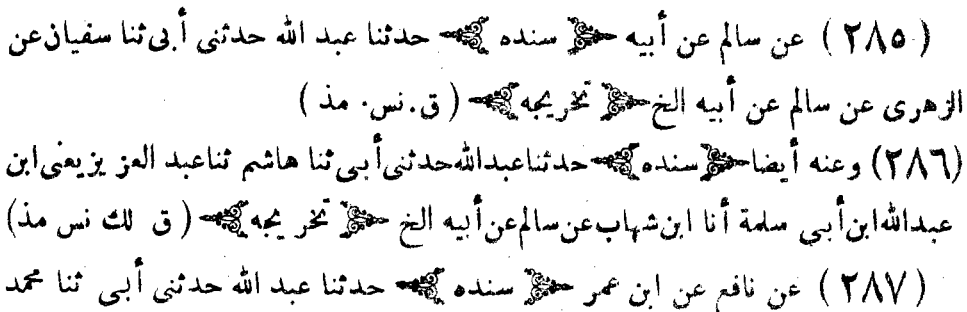 ( ٢٨٥ ) عن سالم عن أبيه ﴿ سنده ﴾ حدثنا عبد الله حدثنى أبى ثنا سفيان عن
الزهرى عن سالم عن أبيه الخ ﴿ تخريجه ﴾ ( ق. نس. مذ )
(٢٨٦) وعنه أيضا ﴿ سنده ﴾ حدثنا عبدالله حدثنى أبى ثنا هاشم ثنا عبد العزيز يعنى ابن
عبدالله ابن أبى سلمة أنا ابن شهاب عن سالم عن أبيه الخ ﴿ تخريجه ﴾ ( ق لك نس مذ)
( ٢٨٧ ) عن نافع عن ابن عمر ﴿ سنده ﴾ حدثنا عبد الله حدثنى أبى ثنا محمد